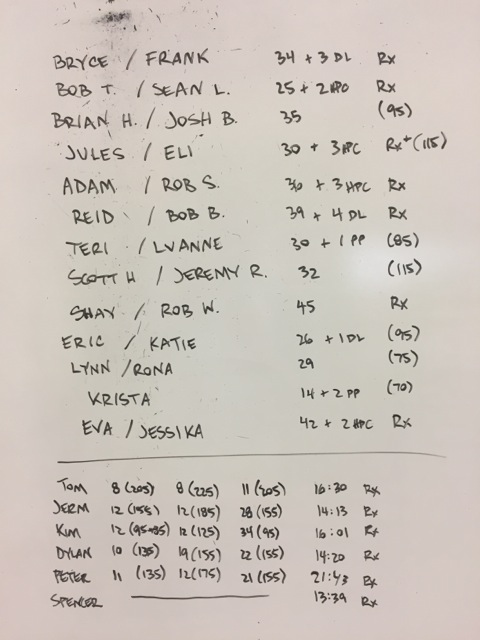 BRYCE / FRANK 34 + 3 DL Rx
BOB T. / SEAN L. 25 + 2 HPC Rx
BRIAN H. / JOSH B. 35 (95)
JULES / ELI 30 + 3 HPC Rx+ (115)
ADAM / ROB S. 30 + 3 HPC Rx
REID / BOB B. 39 + 4 DL Rx
TERI / LVANNE 30 + 1 PP (85)
SCOTT H / JEREMY R. 32 (115)
SHAY / ROB W. 45 Rx
ERIC / KATIE 26 + 1 DL (95)
LYNN / RONA 29 (75)
KRISTA 14 + 2 PP (70)
EVA / JESSIKA 42 + 2 HPC Rx
TOM 8 (205) 8 (225) 11 (205) 16:30 Rx
JERM 12 (155) 12 (185) 28 (155) 14:13 Rx
KIM 12 (95-85) 12 (125) 34 (95) 16:01 Rx
DYLAN 10 (135) 19 (155) 22 (155) 14:20 Rx
PETER 11 (135) 12 (175) 21 (155) 21:43 Rx
SPENCER 13:39 Rx